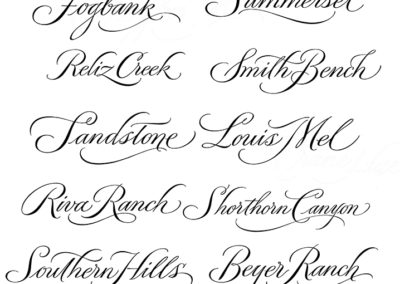 Fogbank Summerset
Reliz Creek Smith Bench
Sandstone Louis Mel
Riva Ranch Shorthorn Canyon
Southern Hills Beyer Ranch